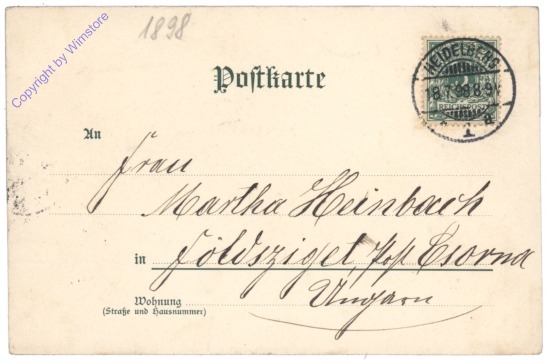 1898
Copyright by Wimstore
Postkarte
HEIDELBERG
8.7.98.8-9V
REICHSPOST
* 1 a
An
Frau
Martha Heinbach
in Földsziget, Post Csorna
Ungarn
Wohnung
(Straße und Hausnummer)